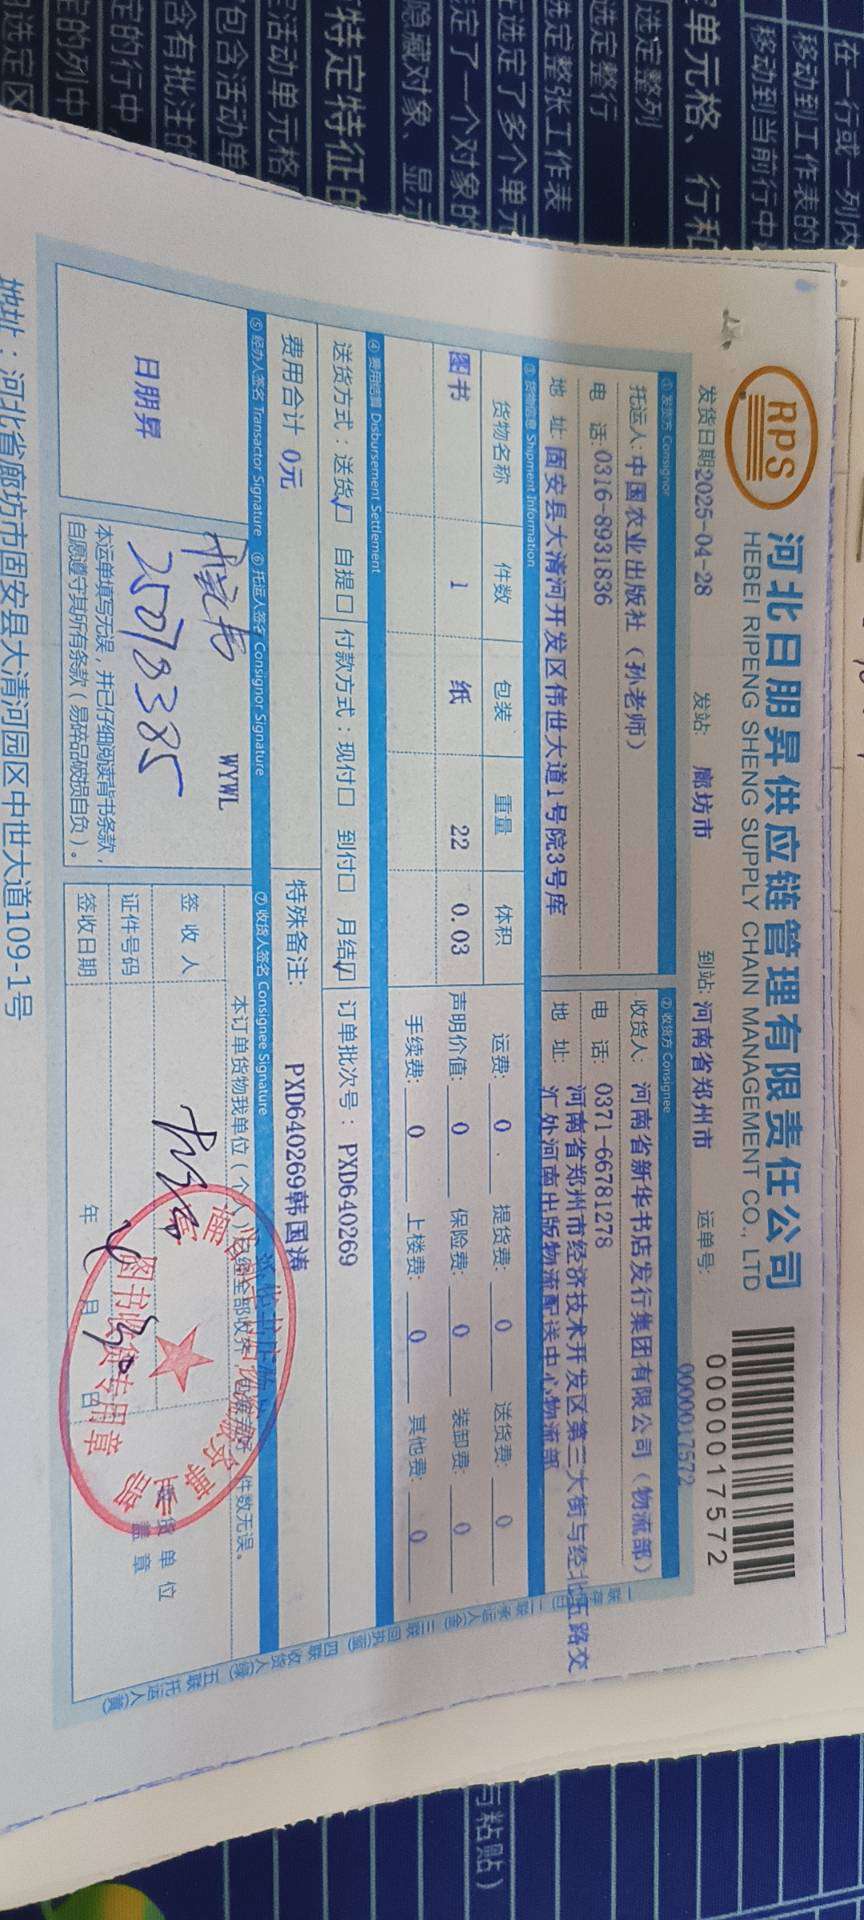 RPS
河北日朋昇供应链管理有限责任公司
HEBEI RIPENG SHENG SUPPLY CHAIN MANAGEMENT CO., LTD
0000017572
发货日期2025-04-28 发站: 廊坊市 到站: 河南省郑州市 运单号: 0000017572
① 发货方 Consignor ② 收货方 Consignee
托运人: 中国农业出版社（孙老师） 收货人: 河南省新华书店发行集团有限公司（物流部）
电 话: 0316-8931836 电 话: 0371-66781278
地 址: 固安县大清河开发区伟世大道1号院3号库 地 址: 河南省郑州市经济技术开发区第三大街与经北五路交
汇外河南出版物流配送中心物流部
③ 货物信息 Shipment Information
货物名称 件数 包装 重量 体积 运费: 0 提货费: 0 送货费: 0
图书 1 纸 22 0.03 声明价值: 0 保险费: 0 装卸费: 0
手续费: 0 上楼费: 0 其他费: 0
④ 费用结算 Disbursement Settlement
送货方式：送货☑ 自提□ 付款方式：现付□ 到付□ 月结☑ 订单批次号：PXD640269
费用合计 0元 特殊备注: PXD640269韩国涛
⑤ 经办人签名 Transactor Signature ⑥ 托运人签名 Consignor Signature ⑦ 收货人签名 Consignee Signature
日朋昇
WYWL
25078385
本运单填写无误，并已仔细阅读背书条款，
自愿遵守其所有条款（易碎品破损自负）。
本订单货物我单位（个人）已经全部收齐 件数无误。
签 收 人
证件号码
签收日期 年 月 日
货 单 位
盖 章
图书收货专用章
四联 收货人(绿) 五联 托运人(黄)
地址：河北省廊坊市固安县大清河园区中世大道109-1号
在一行或一列内
移动到工作表的
移动到当前行中
单元格、行和
选定整列
选定整行
选定整张工作表
选定了多个单元
定了一个对象的
隐藏对象、显示
特定特征的
活动单元格
包含活动单
含有批注的
定的行中
定的列中
选定区
与粘贴）